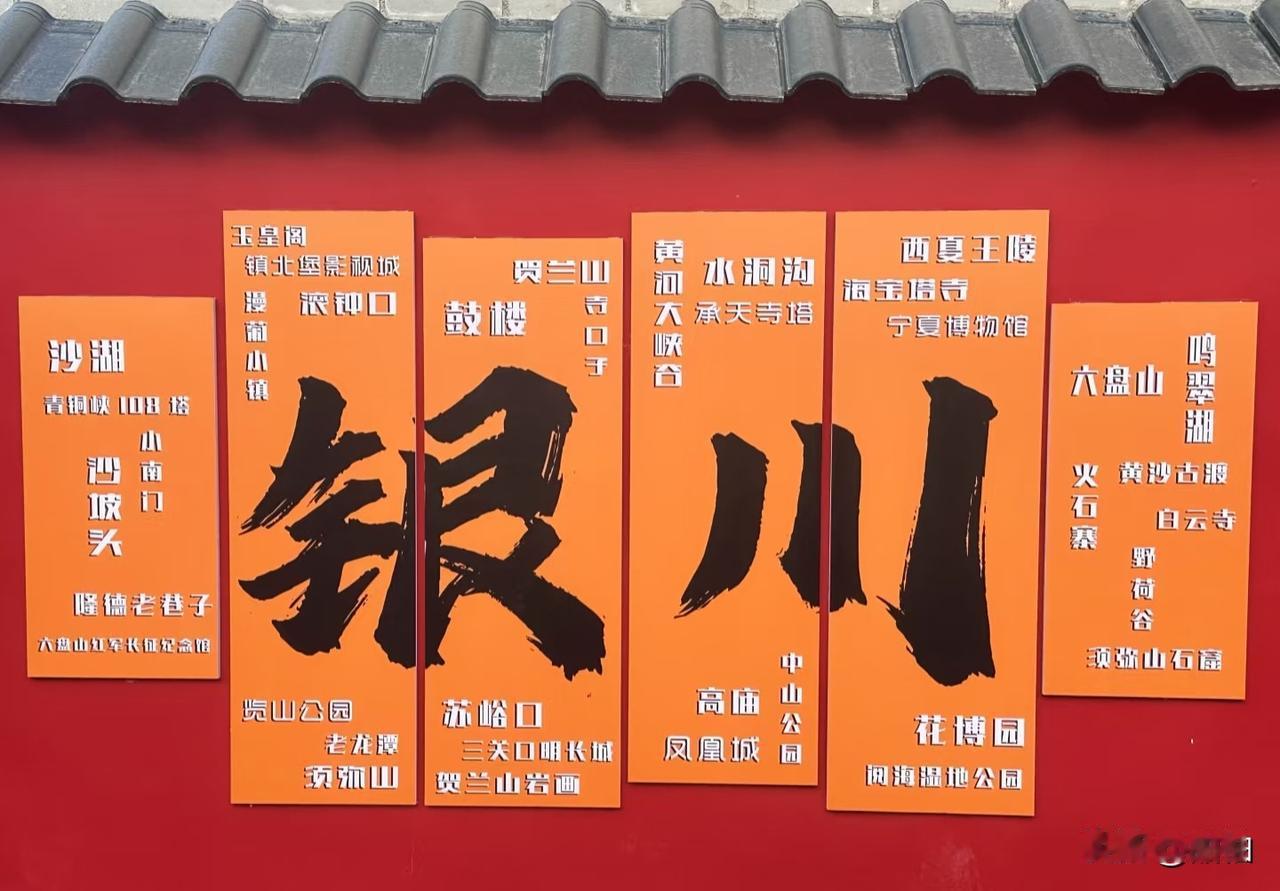 沙湖
青铜峡108塔
小南门
沙坡头
隆德老巷子
六盘山红军长征纪念馆
玉皇阁
镇北堡影视城
漫葡小镇
滚钟口
览山公园
老龙潭
须弥山
贺兰山
鼓楼
寺口子
银川
苏峪口
三关口明长城
贺兰山岩画
黄河大峡谷
水洞沟
承天寺塔
中山公园
高庙
凤凰城
西夏王陵
海宝塔寺
宁夏博物馆
花博园
阅海湿地公园
鸣翠湖
六盘山
火石寨
黄沙古渡
白云寺
野荷谷
须弥山石窟